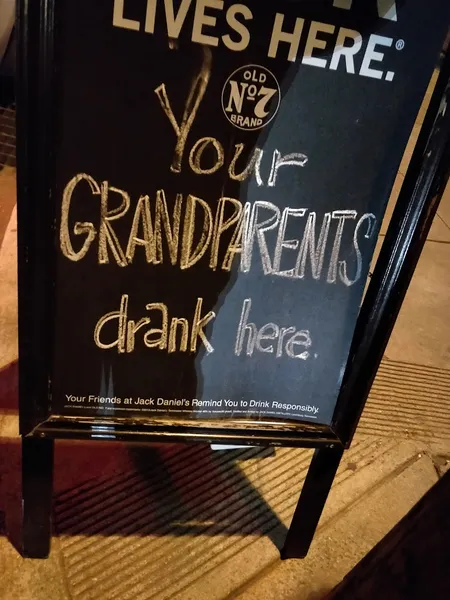 LIVES HERE.®
OLD
Nº7
BRAND
Your
GRANDPARENTS
drank here.
Your Friends at Jack Daniel's Remind You to Drink Responsibly.